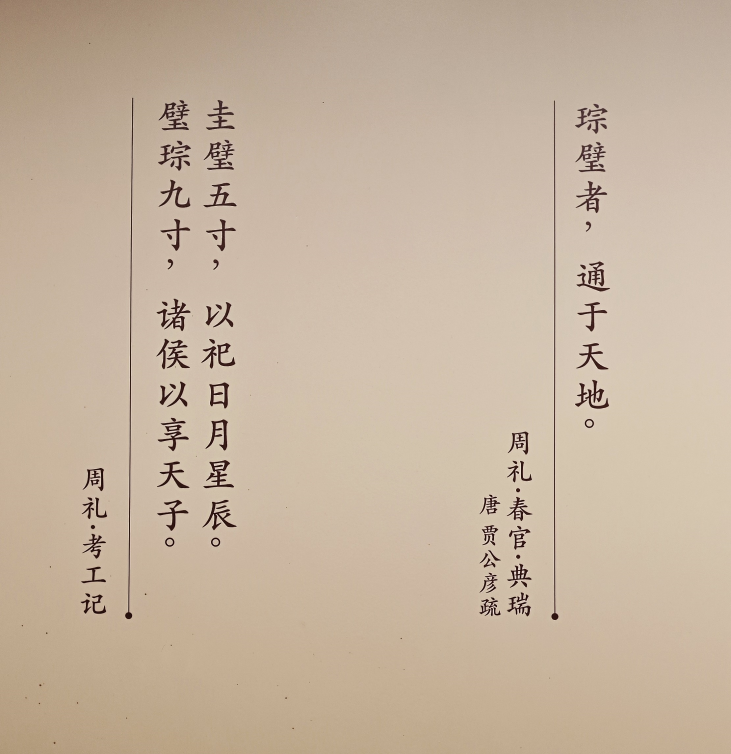 琮璧者，通于天地。
周礼·春官·典瑞
唐 贾公彦疏
圭璧五寸，以祀日月星辰。
璧琮九寸，诸侯以享天子。
周礼·考工记